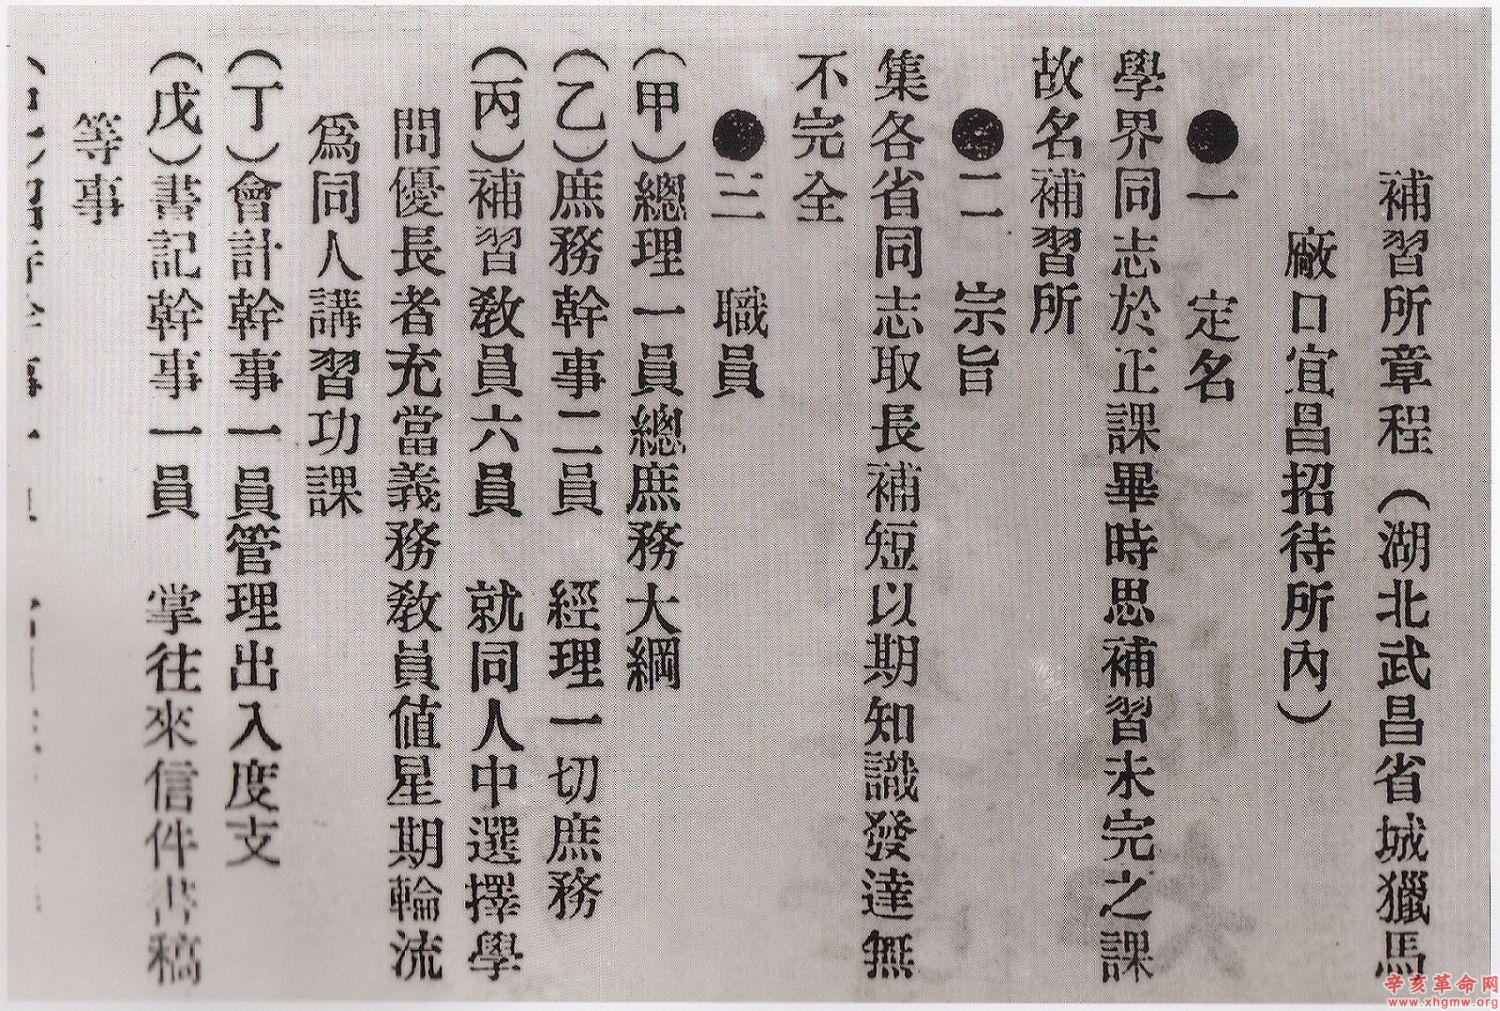 補習所章程（湖北武昌省城獵馬
廠口宜昌招待所內）
●一　定名
學界同志於正課畢時思補習未完之課
故名補習所
●二　宗旨
集各省同志取長補短以期知識發達無
不完全
●三　職員
（甲）總理一員總庶務大綱
（乙）庶務幹事二員　經理一切庶務
（丙）補習教員六員　就同人中選擇學
問優長者充當義務教員值星期輪流
為同人講習功課
（丁）會計幹事一員管理出入度支
（戊）書記幹事一員　掌往來信件書稿
等事
辛亥革命网
www.xhgmw.org